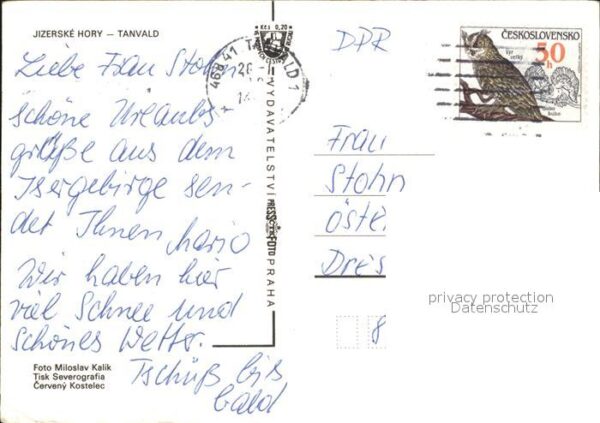 JIZERSKÉ HORY — TANVALD
Liebe Frau Stohn
schöne Urlaubs-
grüße aus dem
Isergebirge sen-
det Ihnen Mario
Wir haben hier
viel Schnee und
schönes Wetter.
Tschüß bis
bald
Foto Miloslav Kalík
Tisk Severografia
Červený Kostelec
Kčs 0,20
VYDAVATELSTVÍ PRESSFOTO PRAHA
468 41 TANVALD 1
ČESKOSLOVENSKO
50 h
Výr velký
DDR
Frau
Stohn
Öste
Dres
8
privacy protection
Datenschutz